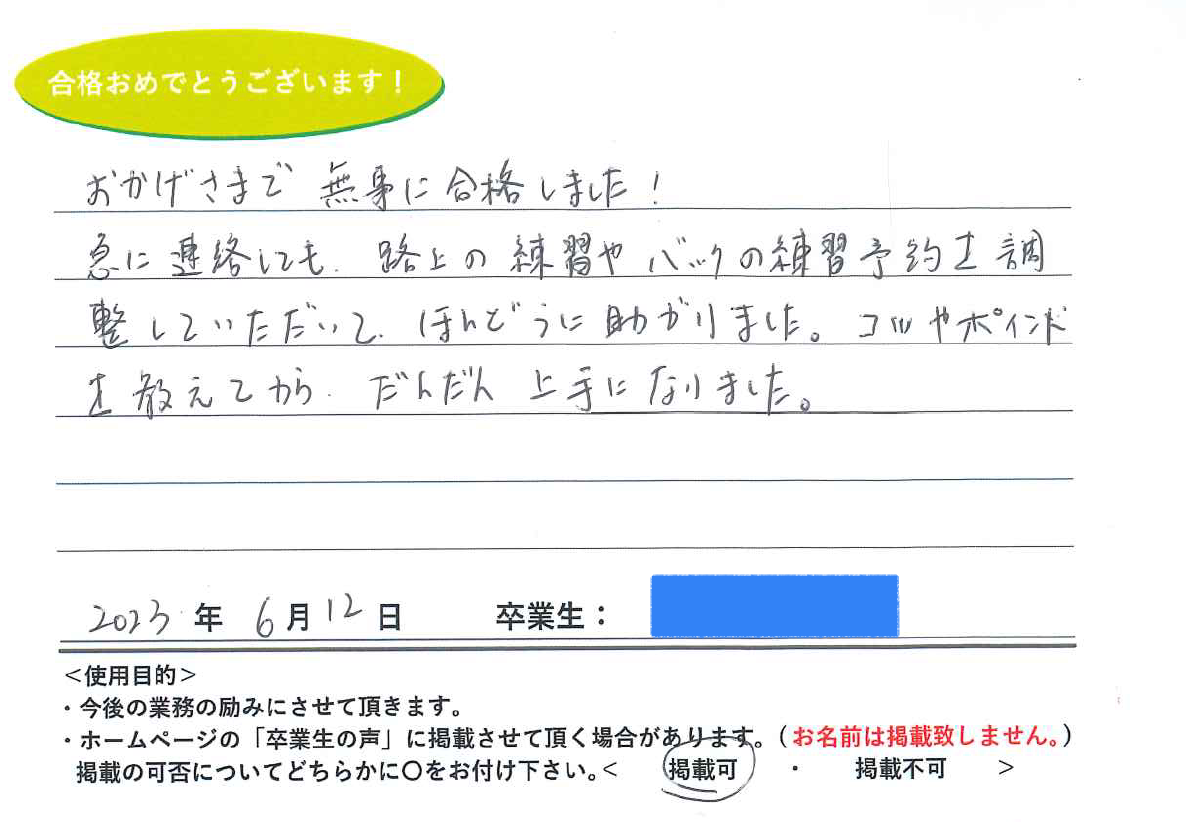 合格おめでとうございます！
おかげさまで 無事に合格しました！
急に連絡しても、路上の練習やバックの練習予約を調
整していただいて、ほんどうに助がりました。コツやポインド
を教えてから、だんだん 上手になりました。
2023年 6月12日 卒業生：
＜使用目的＞
・今後の業務の励みにさせて頂きます。
・ホームページの「卒業生の声」に掲載させて頂く場合があります。（お名前は掲載致しません。）
掲載の可否についてどちらかに〇をお付け下さい。＜ 掲載可 ・ 掲載不可 ＞